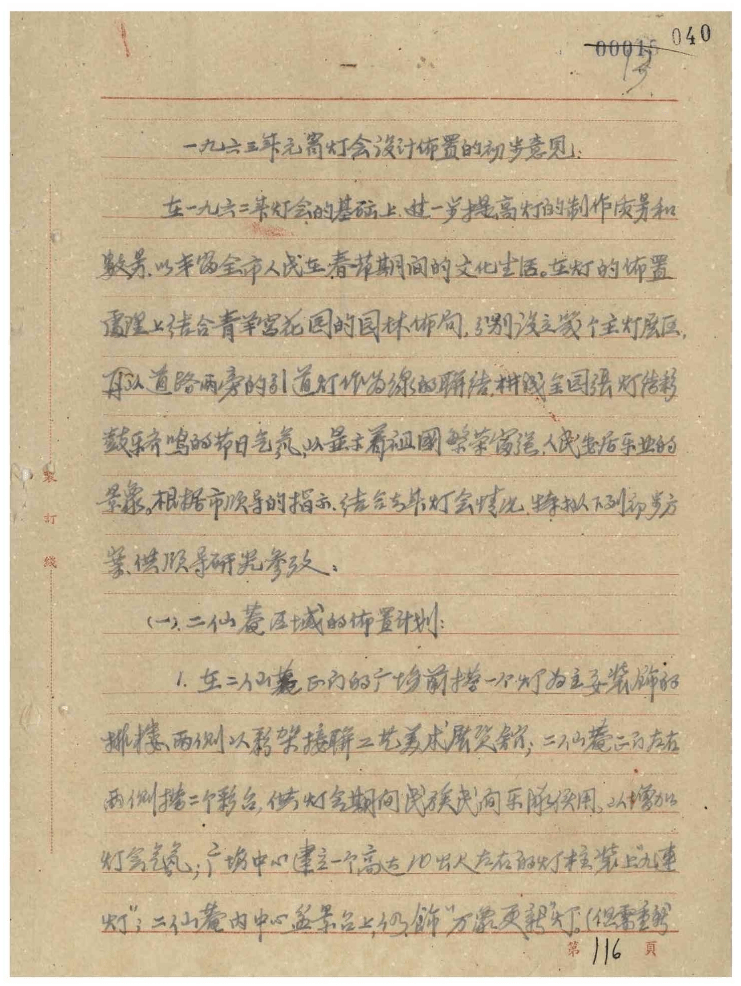 00015 040
13
一九六三年元宵灯会设计佈置的初步意见:
在一九六二年灯会的基础上,进一步提高灯的制作质量和
数量,以丰富全市人民在春节期间的文化生活。在灯的佈置
处理上结合青羊宫花园的园林佈局,分别设立几个主灯展区,
再以道路两旁的引道灯作为线的联结,构成全园张灯结彩
鼓乐齐鸣的节日气氛,以显示着祖國繁荣富强,人民安居乐业的
景象。根据市领导的指示,结合去年灯会情况,特拟下列初步方
案,供领导研究参改。
(一).二仙菴区域的佈置计划:
1.在二仙菴正门的广场前搭一个灯为主要装飾的
排楼,两侧以彩架接联工艺美术展览舘;二仙菴正门左右
两侧搭二个彩台,供灯会期间民族民间乐队使用,以增加
灯会气氛;广场中心建立一个高达10公尺左右的灯柱装上"九連
灯";二仙菴内中心盆景台上,仍飾"万象更新"灯。(但需重新
裝訂綫
第116頁